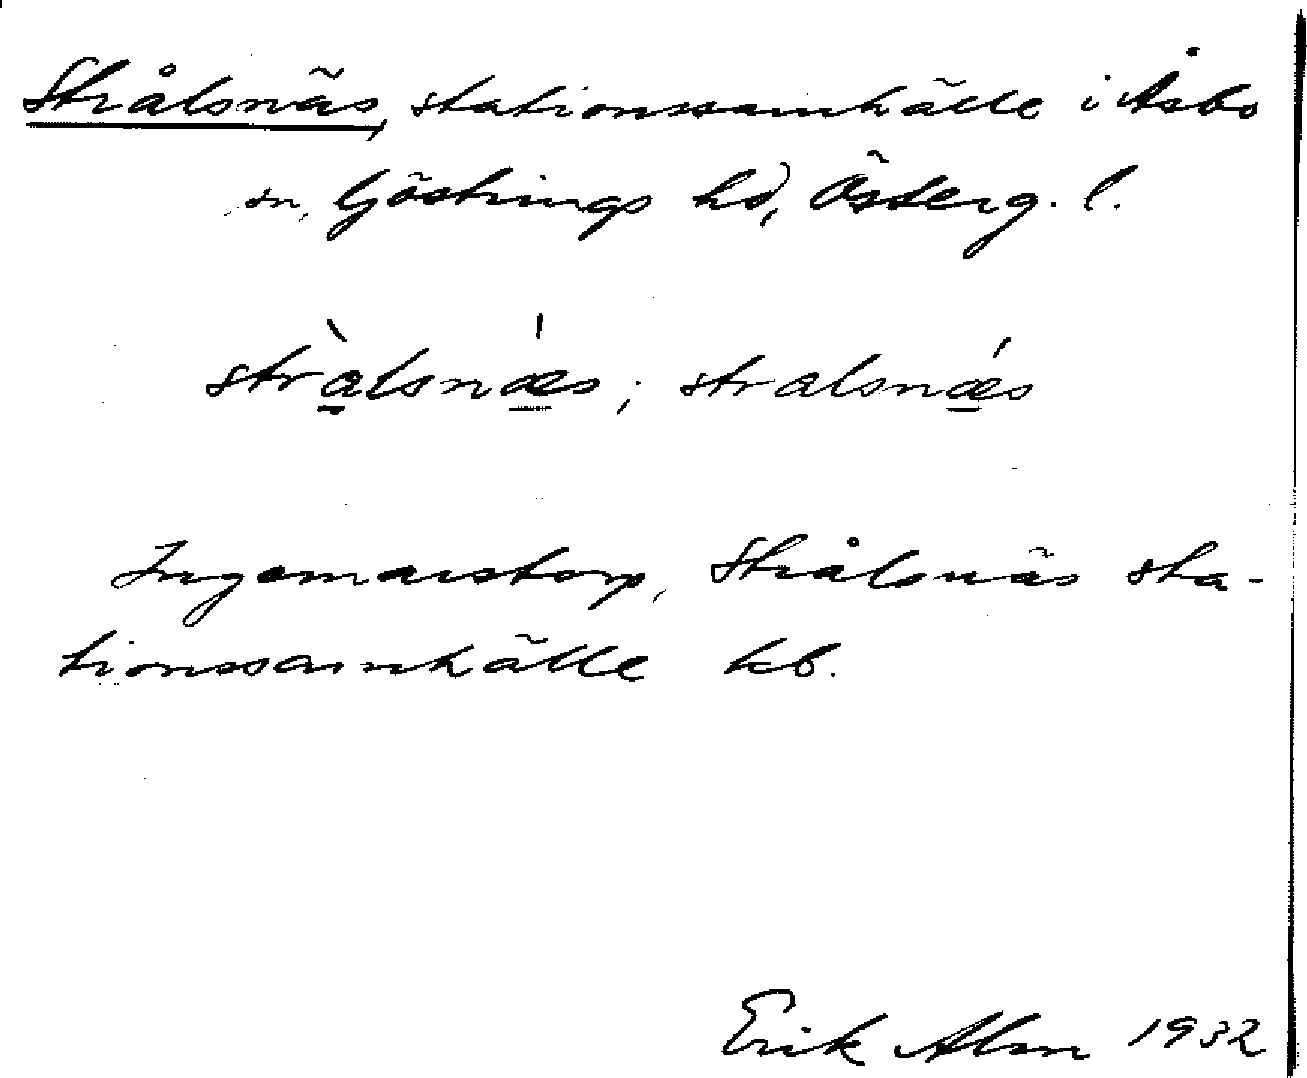 Strålsnäs, stationssamhälle i Åsbo
sn, Göstrings hd, Österg. l.
stràlsnǽ̱s; stralsnǽ̱s
Ingemarstorp, Strålsnäs sta-
tionssamhälle kb.
Erik Alm 1932